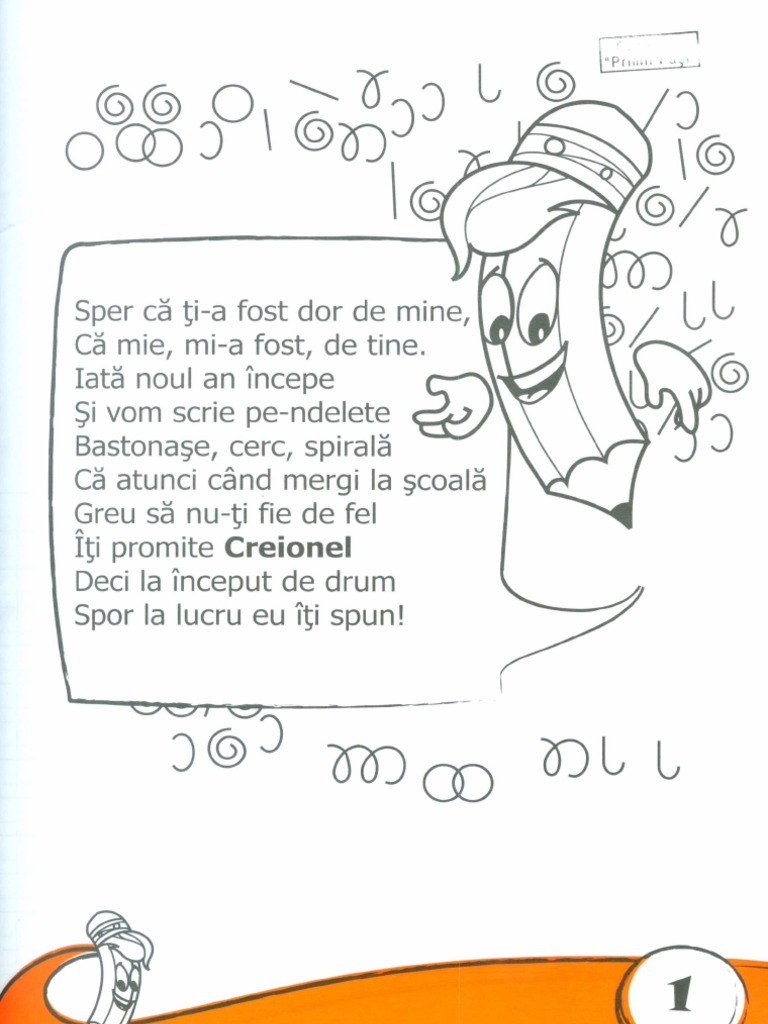 Sper că ţi-a fost dor de mine,
Că mie, mi-a fost, de tine.
Iată noul an începe
Şi vom scrie pe-ndelete
Bastonaşe, cerc, spirală
Că atunci când mergi la şcoală
Greu să nu-ţi fie de fel
Îţi promite Creionel
Deci la început de drum
Spor la lucru eu îţi spun!
1